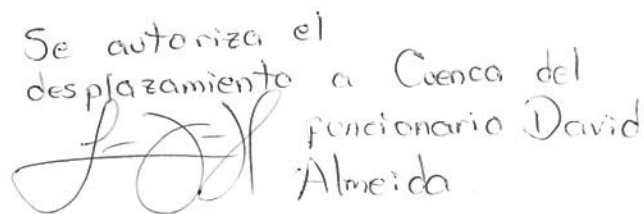 Se autoriza el
desplazamiento a Cuenca del
funcionario David
Almeida